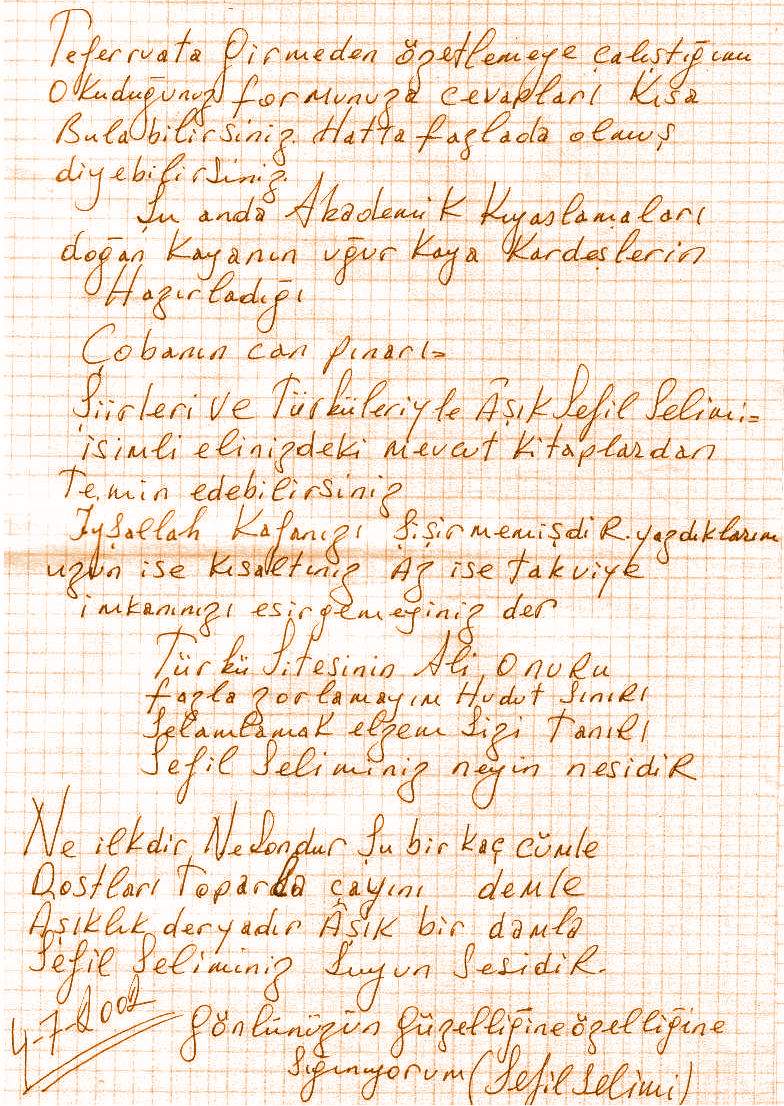 Teferruata Girmeden özetlemeye çalıştığımı
Okuduğunuz formunuza cevapları Kısa
Bula bilirsiniz. Hatta fazlada olmuş
diyebilirsiniz.
Şu anda Akademik Kıyaslamaları
doğan Kayanın uğur Kaya Kardeşlerin
Hazırladığı
Çobanın can pınarı=
Şiirleri ve Türküleriyle Âşık Sefil Selimi=
isimli elinizdeki mevcut kitaplardan
Temin edebilirsiniz
Kafanızı Şişirmemişdir. yazdıklarım
uzun ise Kısaltınız Az ise takviye
imkanınızı esirgemeyiniz der
Türkü Sitesinin Ali onuru
fazla zorlamayım Hudut Sınırı
Selamlamak elzem Sizi Tanırı
Sefil Seliminiz neyin nesidir
Ne ilkdir, Nesondur Şu bir kaç cümle
Dostları Toparla çayını demle
Aşıklık deryadır Âşık bir damla
Sefil Seliminiz Suyun Sesidir.
4-7-2002 Gönlünüzün Güzelliğine özelliğine
Sığınıyorum (Sefil Selimi)